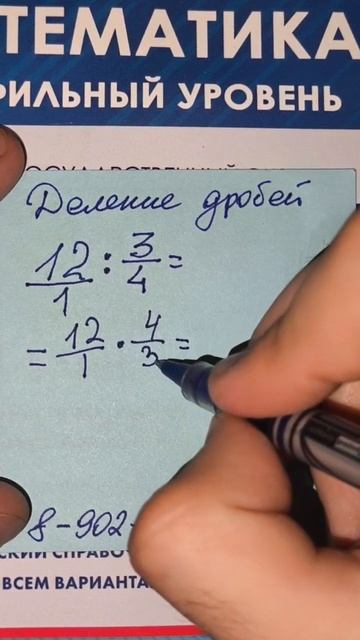 ТЕМАТИКА
ФИЛЬНЫЙ УРОВЕНЬ
Деление дробей
12/1 : 3/4 =
= 12/1 · 4/3 =
8-902-
СКИЙ СПРАВО
ВСЕМ ВАРИАНТА